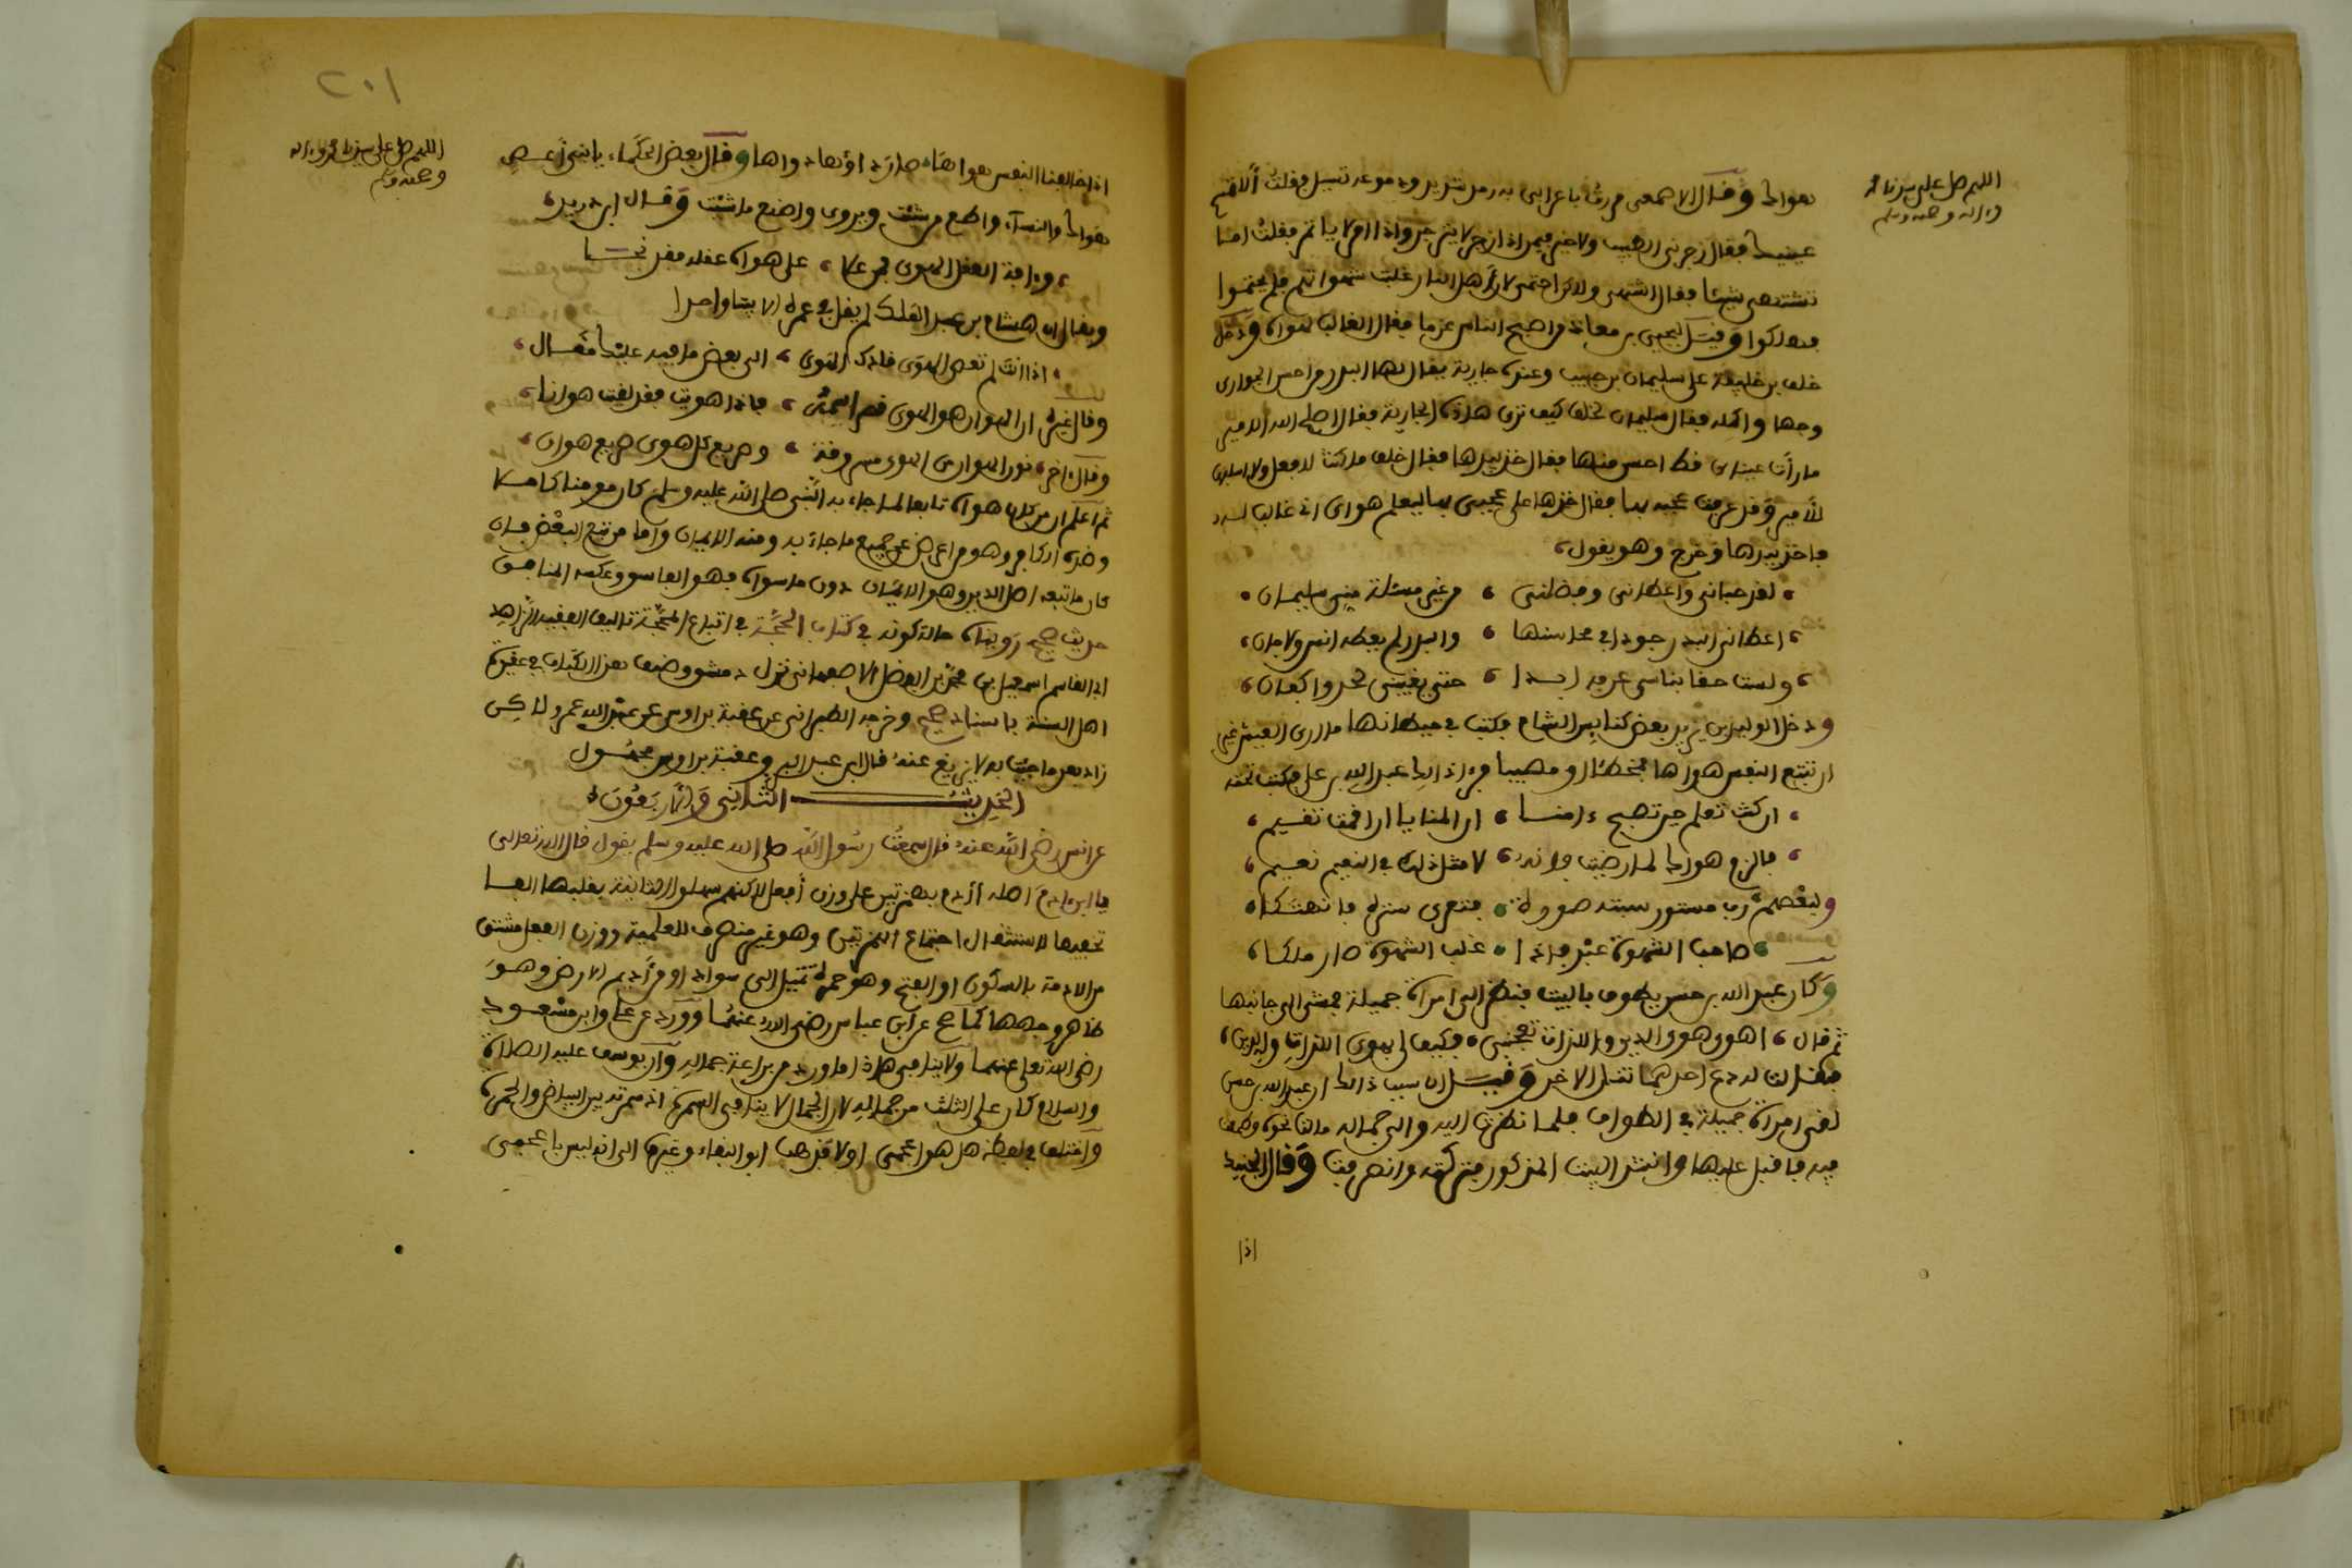 اللهم صل على سيدنا محمد
وءاله وصحبه وسلم
هواك وقال الاصمعي مررت باعرابي به رمد شديد ودموعه تسيل فقلت ألا تمسح
عينيك فقال زجرني الطبيب ولا خير فيمن اذا زجر لا ينزجر واذا امر لا ياتمر فقلت اما
تشتهي شيئا فقال اشتهي ولاكن احتمي لأن أهل النار غلبت شهواتهم فلم يحتموا
فهلكوا وقيل ليحيى بن معاذ من اصح الناس عزما فقال الغالب لهواه ودخل
خلف بن خليفة على سليمان بن حبيب وعنده جارية يقال لها البدر من احسن الجواري
وجها واكمله فقال سليمان لخلف كيف ترى هاذه الجارية فقال اصلح الله الامير
ما رأت عيناي قط احسن منها فقال خذ بيدها فقال خلف ما كنت لافعل ولا اسلبها
للأمير وقد عرفت عجبه بها فقال خذها على عجبي بها ليعلم هواي اني غالب له
فاخذ بيدها وخرج وهو يقول
لقد حباني واعطاني وفضلني من غير مسئلة مني سليمان
اعطاني البدر جودا في محاسنها والبدر لم يعطه انس ولا جان
ولست حقا بناسي عرفه ابدا حتى يغيبني لحد واكفان
ودخل الوليد بن يزيد بعض كنايس الشام فكتب في حيطانها ما ارى العيش غير
ان تتبع النفس هواها فمخطئا او مصيبا فرءا ذالك عبد الله بن علي فكتب تحته
ان كنت تعلم حين تصبح ءامنا ان المنايا ان اقمت تقيم
فالزم هواك لما رضيت فإنه لا مثل ذلك في النعيم نعيم
ولبعضهم رب مستور سبته صبوة فتعرى ستره فانهتكا
صاحب الشهوة عبد فإذا غلب الشهوة صار ملكا
وكان عبد الله بن حسن يطوف بالبيت فنظر الى امراة جميلة فمشى الى جانبها
ثم قال اهوى هوى الدين واللذات تعجبني فكيف لي بهوى اللذات والدين
فقالت له دع احدهما تنل الاخر وقيل ان سبب ذالك ان عبد الله بن حسن
لقي امراة جميلة في الطواف فلما نظرت اليه والى جماله مالت نحوه وطمعت
فيه فاقبل عليها وانشد البيت المذكور فتركته وانصرفت وقال الجنيد
اذا
٢٠١
اللهم صل على سيدنا محمد وءاله
وصحبه وسلم
اذا خالفت النفس هواها صار داؤها دواها وقال بعض الحكماء يا بني أعص
هواك والنساء واطع من شئت ويروى واصنع ما شئت وقال ابن دريد
وءافة العقل الهوى فمن علا على هواه عقله فقد نجا
ويقال ان هشام بن عبد الملك لم يقل في عمره الا بيتا واحدا
اذا انت لم تعص الهوى قادك الهوى الى بعض ما فيه عليك مقال
وقال غيره ان الهوان هو الهوى قصر اسمه فإذا هويت فقد لقيت هوانا
وقال ءاخر نون الهوان من الهوى مسروقة وصريع كل هوى صريع هوان
ثم اعلم ان من كان هواه تابعا لما جاء به النبي صلى الله عليه وسلم كان مومنا كاملا
وضده الكافر وهو من اعرض عن جميع ما جاء به ومنه الايمان واما من تبع البعض فان
كان ما تبعه اصل الدين وهو الايمان دون ما سواه فهو الفاسق وعكسه المنافق
حديث صحيح رويناه حالة كونه في كتاب الحجة في اتباع المحجة تاليف الفقيه الزاهد
ابي القاسم اسمعيل بن محمد بن الفضل الاصبهاني نزل دمشق وضف هذا الكتاب في عقيدة
اهل السنة باسناد صحيح وخرجه الطبراني عن عقبة بن اوس عن عبد الله عمرو لاكن
زاد بعد ما جئت به لا يزيغ عنه قال ابن عبد البر وعقبة بن اوس مجهول
الحديث الثاني والأربعون
عن انس رضي الله عنه قال سمعت رسول الله صلى الله عليه وسلم يقول قال الله تعالى
يا ابن ءادم اصله أأدم بهمزتين على وزن أفعل لاكنهم سهلوا الثانية بقلبها الفا
تخفيفا لاستثقال اجتماع الهمزتين وهو غير منصرف للعلمية ووزن الفعل مشتق
من الادمة بالسكون او الفتح وهو حمرة تميل الى سواد او من أديم الارض وهو
ظاهر وجهها كما صح عن ابن عباس رضي الله عنهما وورد عن علي وابن مسعود
رضي الله تعلى عنهما ولا ينافي هاذا ما ورد من براعة جماله وان يوسف عليه الصلاة
والسلام كان على الثلث من جماله لان الجمال لا ينافي السمرة اذ سمرته بين البياض والحمرة
واختلف في لفظه هل هو اعجمي او لا فذهب ابو البقاء وغيره الى انه ليس باعجمي